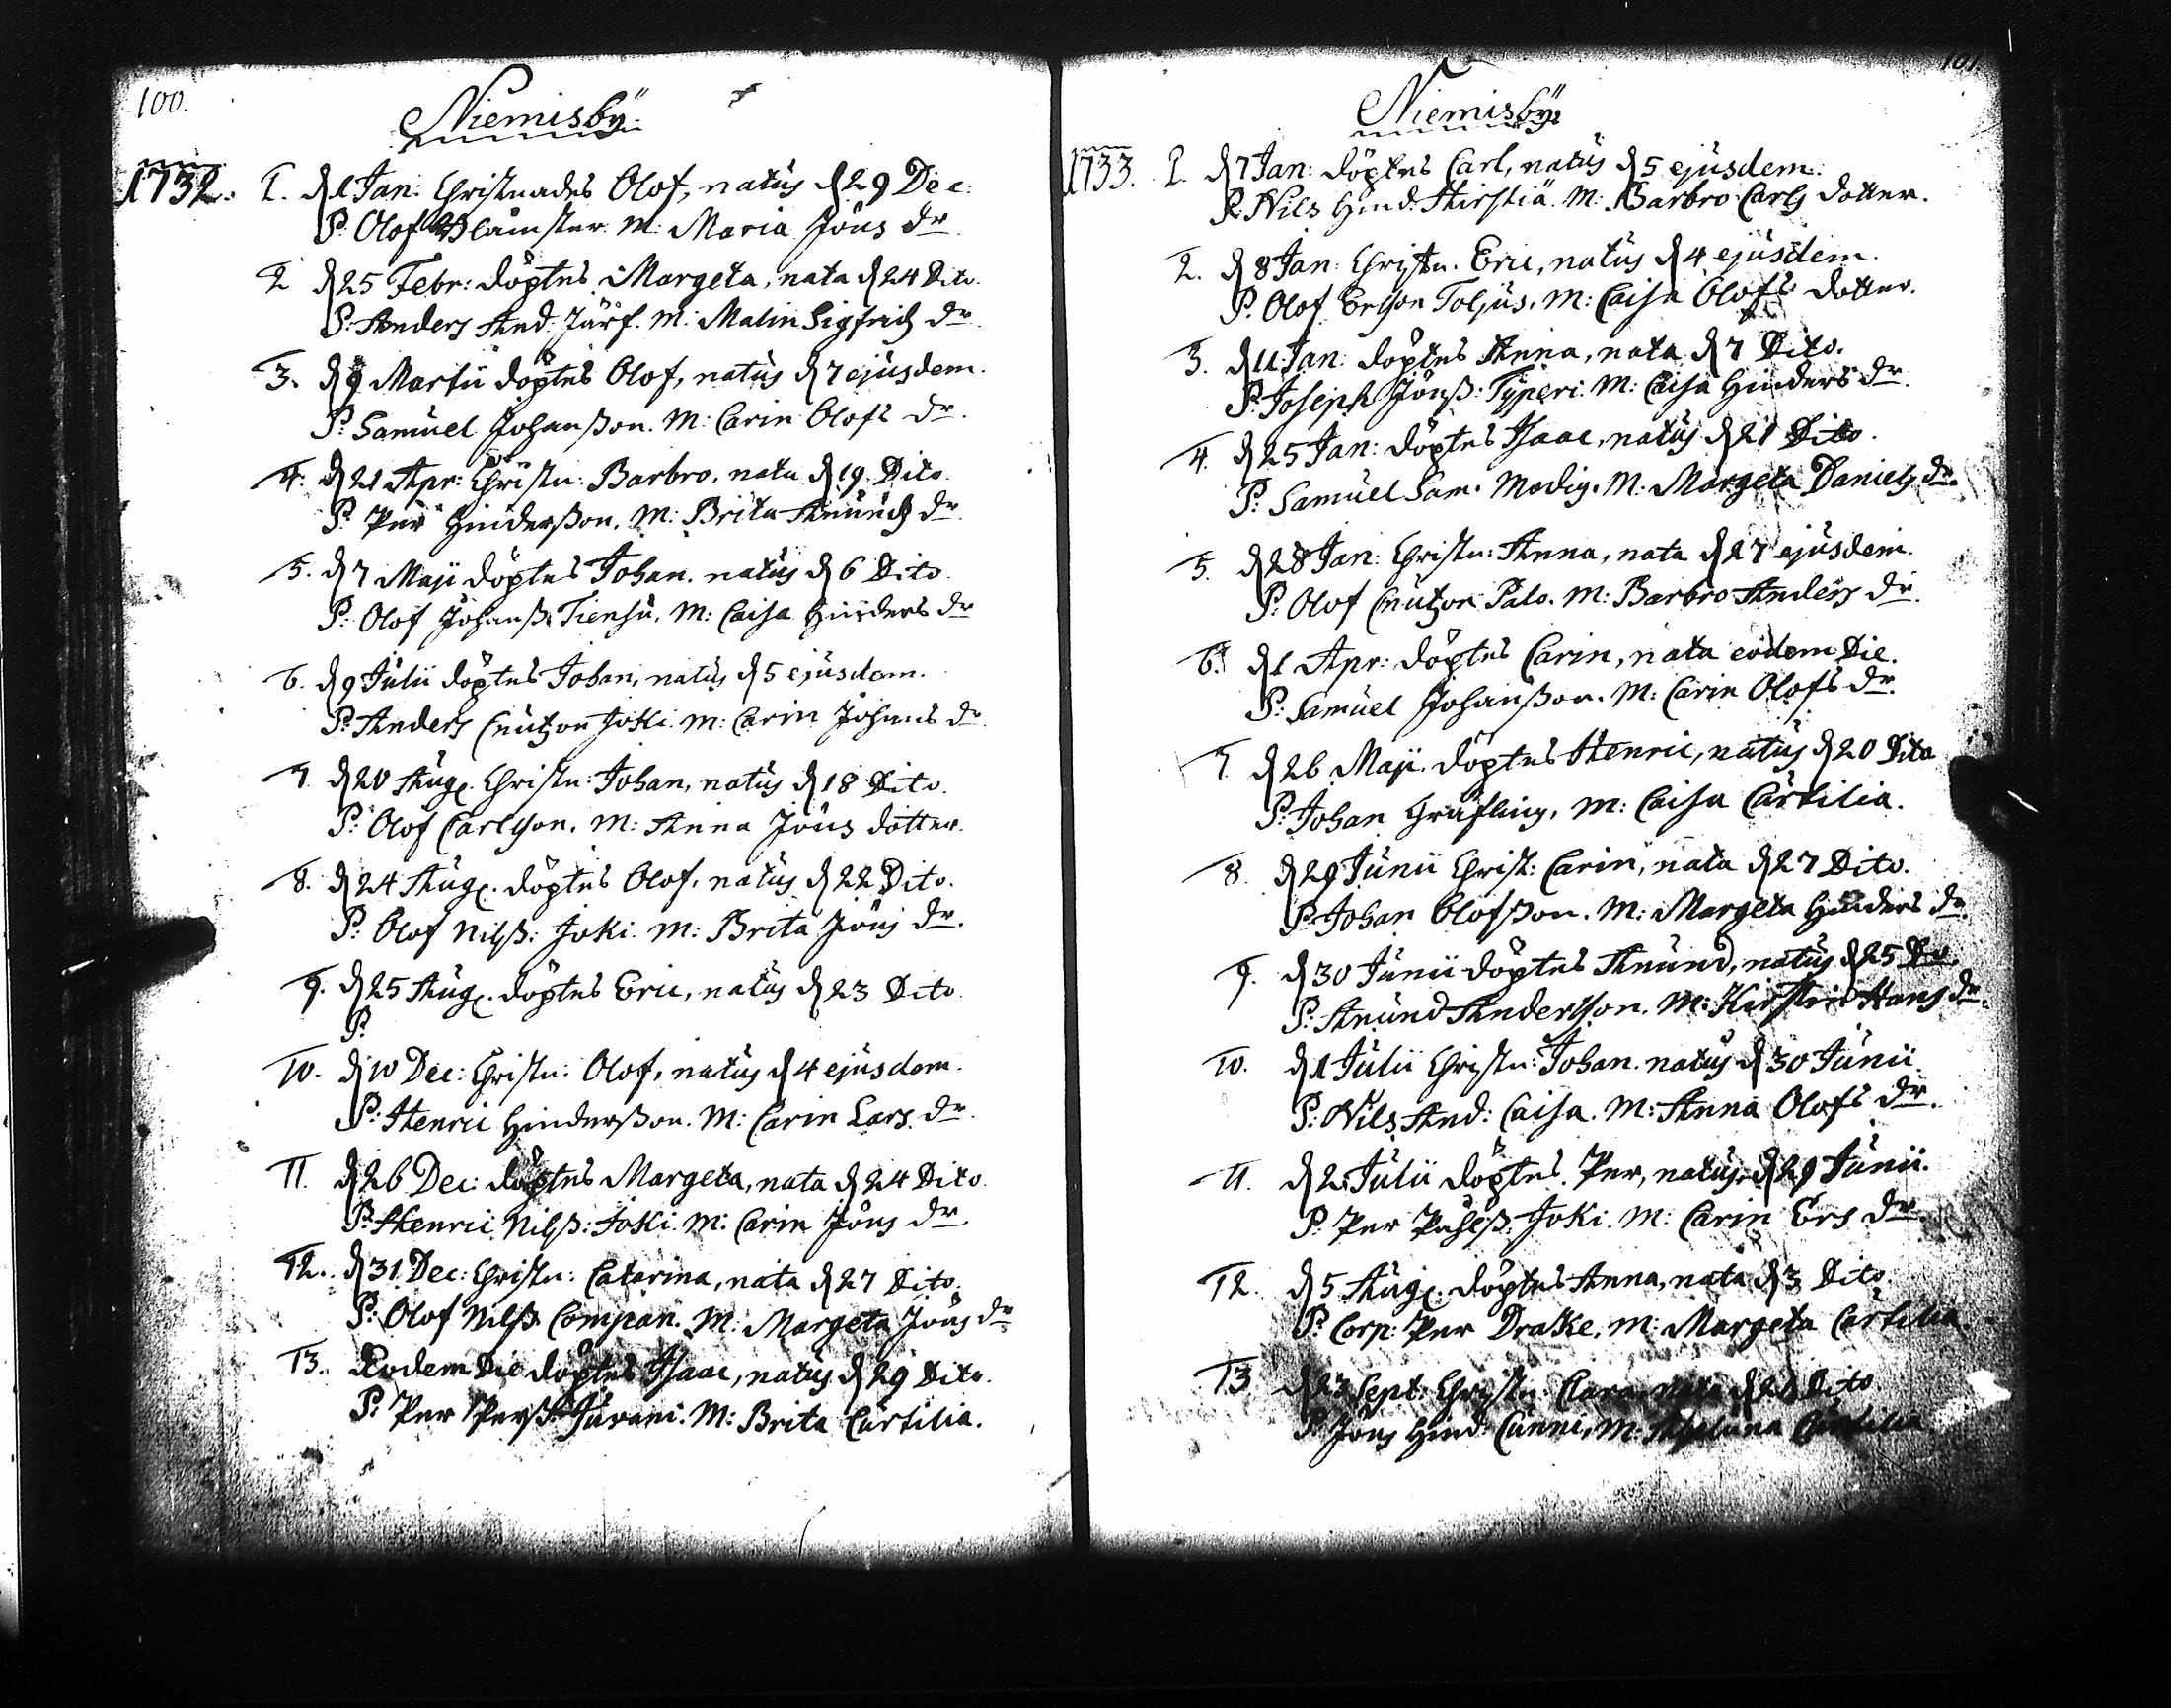 100.
Niemisbÿ.
1732. 1. d. 1 Jan: Christnades Olof, natus d. 29 Dec:
P: Olof M: Maria Jöns dr.
2 d. 25 Febr: döptes Margeta, nata d. 24 Dito.
P: Anders And: Järf. M: Malin Sigfridz dr.
3. d. 9 Martii döptes Olof, natus d. 7 ejusdem.
P: Samuel Johanßon. M: Carin Olofs dr.
4. d. 21 Apr: Christn: Barbro, nata d. 19. Dito.
P. Per Hinderßon. M: Brita Anundz dr.
5. d. 7 Maji döptes Johan. natus d. 6 Dito.
P: Olof Johanß: Tiensu. M: Caisa Hinders dr
6. d. 9 Julii döptes Johan, natus d. 5 ejusdem.
P: Anders Cnutzon Joki. M: Carin Johans dr.
7. d. 20 Aug. Christn: Johan, natus d. 18 Dito.
P: Olof Carlsson. M: Anna Jöns dotter.
8. d. 24 Aug. döptes Olof, natus d. 22 Dito.
P. Olof Nilß: Joki. M: Brita Jöns dr.
9. d. 25 Aug. döptes Eric, natus d. 23 Dito.
P.
10. d. 10 Dec: Christn: Olof, natus d. 4 ejusdem.
P: Henric Hinderßon. M: Carin Lars dr.
11. d. 26 Dec: döptes Margeta, nata d. 24 Dito.
P: Henric Nilß: Joki. M: Carin Jöns dr
12. d. 31 Dec: Christn: Catarina, nata d. 27 Dito.
P: Olof Nilß Compan. M: Margeta Jöns dr
13. Eodem Die döptes Isaac, natus d. 29 Dito.
P: Per Perß: Juvani. M: Brita Cartilia.
101.
Niemisbÿ.
1733. 1. d. 7 Jan: döptes Carl, natus d. 5 ejusdem.
P. Nils Hind: M: Barbro Carls dotter.
2. d. 8 Jan: Christn. Eric, natus d. 4 ejusdem.
P. Olof Ersson Toljus. M: Caisa Olofs dotter.
3. d. 11 Jan: döptes Anna, nata d. 7 Dito.
P. Joseph Jönß: Typeri. M: Caisa Hinders dr.
4. d. 25 Jan: döptes Isaac, natus d. 21 Dito.
P: Samuel Sam. Modig. M. Margeta Daniels dr.
5. d. 28 Jan: Christn: Anna, nata d. 27 ejusdem.
P: Olof Cnutzon Palo. M: Barbro Anders dr.
6. d. 1 Apr: döptes Carin, nata eodem Die.
P: Samuel Johanßon. M: Carin Olofs dr.
7. d. 26 Maji. döptes Henric, natus d. 20 Dito
P: Johan Gräfling. M: Caisa Cartilia.
8. d. 29 Junii Christ: Carin, nata d. 27 Dito.
P: Johan Olofsson. M: Margeta Hinders dr.
9. d. 30 Junii döptes Anund, natus d. 25 Do.
P: Anund Andersson. M: Kirstin Hans dr.
10. d. 1 Julii Christn: Johan. natus d. 30 Junii.
P: Nils And: Caisa. M: Anna Olofs dr.
11. d. 2 Julii döptes Per, natus d. 29 Junii.
P: Per Påhlß: Joki. M: Carin Ers dr.
12. d. 5 Aug. döptes Anna, nata d. 3 Dito.
P: Corp: Per Drake. M: Margeta Cartilia.
13 d. 23 Sept: Christn: Clara, nata d. 20 Dito
P. Jöns Hind: Cunni, M: